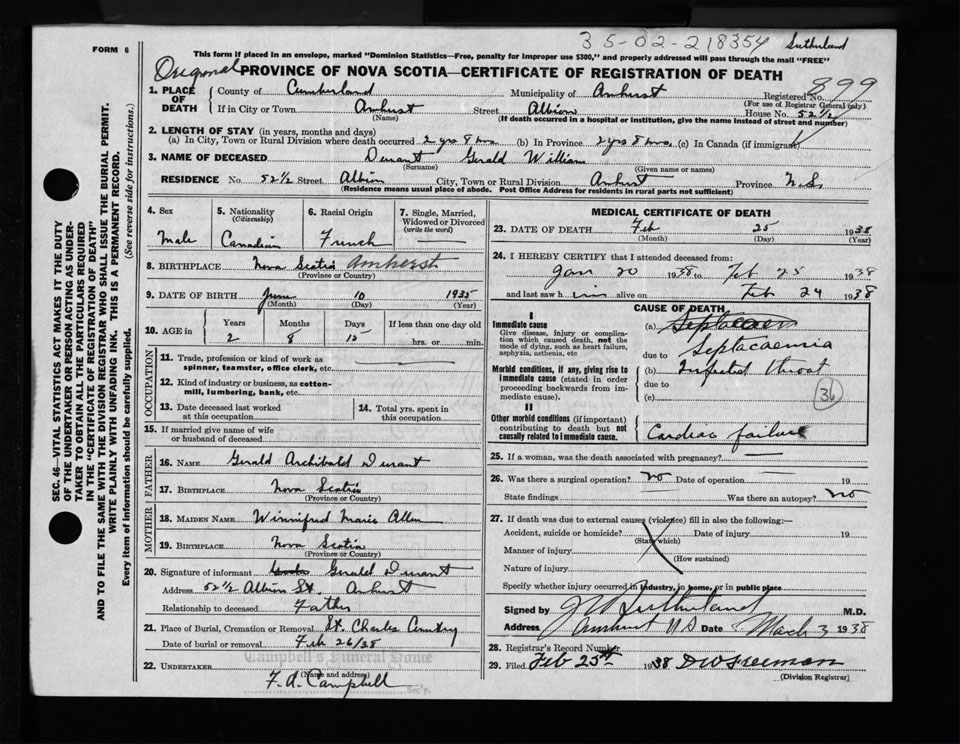 35-02-218354 Sutherland
FORM 6
This form if placed in an envelope, marked "Dominion Statistics—Free, penalty for improper use $300," and properly addressed will pass through the mail "FREE"
Original PROVINCE OF NOVA SCOTIA—CERTIFICATE OF REGISTRATION OF DEATH
899
1. PLACE OF DEATH County of Cumberland Municipality of Amherst Registered No.
(For use of Registrar General only)
If in City or Town Amherst Street Albion House No. 52½
(Name) (If death occurred in a hospital or institution, give the name instead of street and number)
2. LENGTH OF STAY (in years, months and days)
(a) In City, Town or Rural Division where death occurred 2 yrs 8 mos (b) In Province 2 yrs 8 mos (c) In Canada (if immigrant)
3. NAME OF DECEASED Durant Gerald William
(Surname) (Given name or names)
RESIDENCE No 52½ Street Albion City, Town or Rural Division Amherst Province N.S.
(Residence means usual place of abode. Post Office Address for residents in rural parts not sufficient)
4. Sex 5. Nationality (Citizenship) 6. Racial Origin 7. Single, Married, Widowed or Divorced (write the word)
Male Canadian French
8. BIRTHPLACE Nova Scotia Amherst
(Province or Country)
9. DATE OF BIRTH June 10 1935
(Month) (Day) (Year)
10. AGE in Years Months Days If less than one day old
2 8 15 hrs. or min.
OCCUPATION
11. Trade, profession or kind of work as spinner, teamster, office clerk, etc.
12. Kind of industry or business, as cotton-mill, lumbering, bank, etc.
13. Date deceased last worked at this occupation
14. Total yrs. spent in this occupation
15. If married give name of wife or husband of deceased
FATHER
16. NAME Gerald Archibald Durant
17. BIRTHPLACE Nova Scotia
(Province or Country)
MOTHER
18. MAIDEN NAME Winnifred Marie Allen
19. BIRTHPLACE Nova Scotia
(Province or Country)
20. Signature of informant Gerald Durant
Address 52½ Albion St. Amherst
Relationship to deceased Father
21. Place of Burial, Cremation or Removal St. Charles Cemetry
Date of burial or removal Feb 26/38
Campbell's Funeral Home
22. UNDERTAKER F. A. Campbell
(Name and address)
MEDICAL CERTIFICATE OF DEATH
23. DATE OF DEATH Feb 25 1938
(Month) (Day) (Year)
24. I HEREBY CERTIFY that I attended deceased from:
Jan 20 1938 to Feb 25 1938
and last saw him alive on Feb 24 1938
CAUSE OF DEATH
I
Immediate cause
Give disease, injury or complication which caused death, not the mode of dying, such as heart failure, asphyxia, asthenia, etc
(a)
due to Septacaemia
Morbid conditions, if any, giving rise to immediate cause (stated in order proceeding backwards from immediate cause).
(b) Infected throat
due to
(c)
36
II
Other morbid conditions (if important) contributing to death but not causally related to immediate cause.
Cardiac failure
25. If a woman, was the death associated with pregnancy?
26. Was there a surgical operation? no Date of operation 19
State findings Was there an autopsy? no
27. If death was due to external causes (violence) fill in also the following:—
Accident, suicide or homicide? Date of injury 19
(State which)
Manner of injury
(How sustained)
Nature of injury
Specify whether injury occurred in industry, in home, or in public place
Signed by J W Sutherland M.D.
Address Amherst N S Date March 3 1938
28. Registrar's Record Number
29. Filed Feb 25th 1938 D W Freeman
(Division Registrar)
SEC. 46—VITAL STATISTICS ACT MAKES IT THE DUTY
OF THE UNDERTAKER OR PERSON ACTING AS UNDER-
TAKER TO OBTAIN ALL THE PARTICULARS REQUIRED
IN THE "CERTIFICATE OF REGISTRATION OF DEATH"
AND TO FILE THE SAME WITH THE DIVISION REGISTRAR WHO SHALL ISSUE THE BURIAL PERMIT.
WRITE PLAINLY WITH UNFADING INK. THIS IS A PERMANENT RECORD.
Every item of information should be carefully supplied. (See reverse side for instructions.)